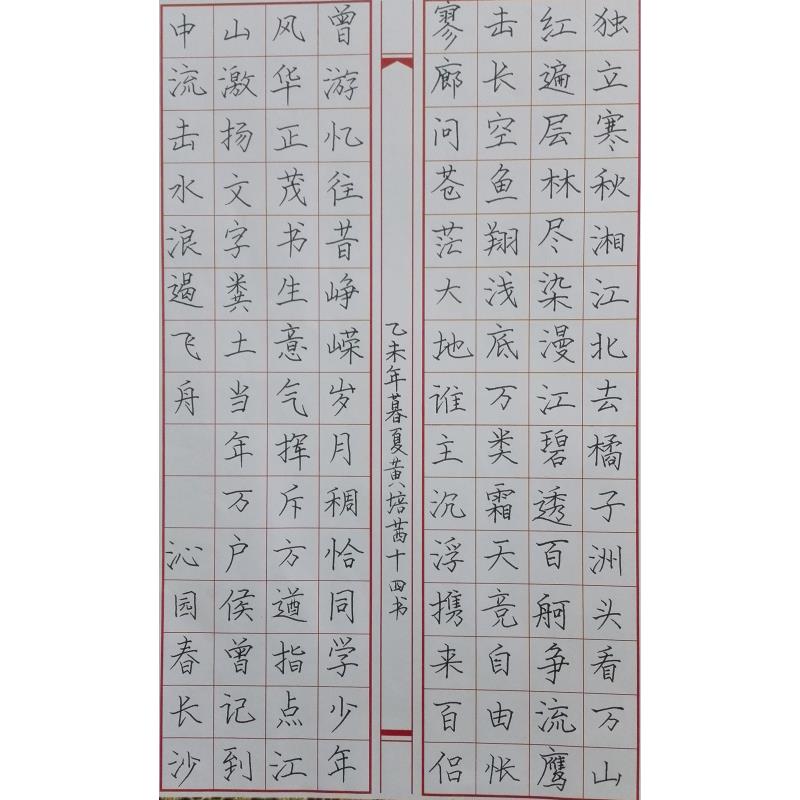 独立寒秋湘江北去橘子洲头看万山
红遍层林尽染漫江碧透百舸争流鹰
击长空鱼翔浅底万类霜天竞自由怅
寥廊问苍茫大地谁主沉浮携来百侣
乙未年暮夏黄培茜十四书
曾游忆往昔峥嵘岁月稠恰同学少年
风华正茂书生意气挥斥方遒指点江
山激扬文字粪土当年万户侯曾记到
中流击水浪遏飞舟 沁园春长沙